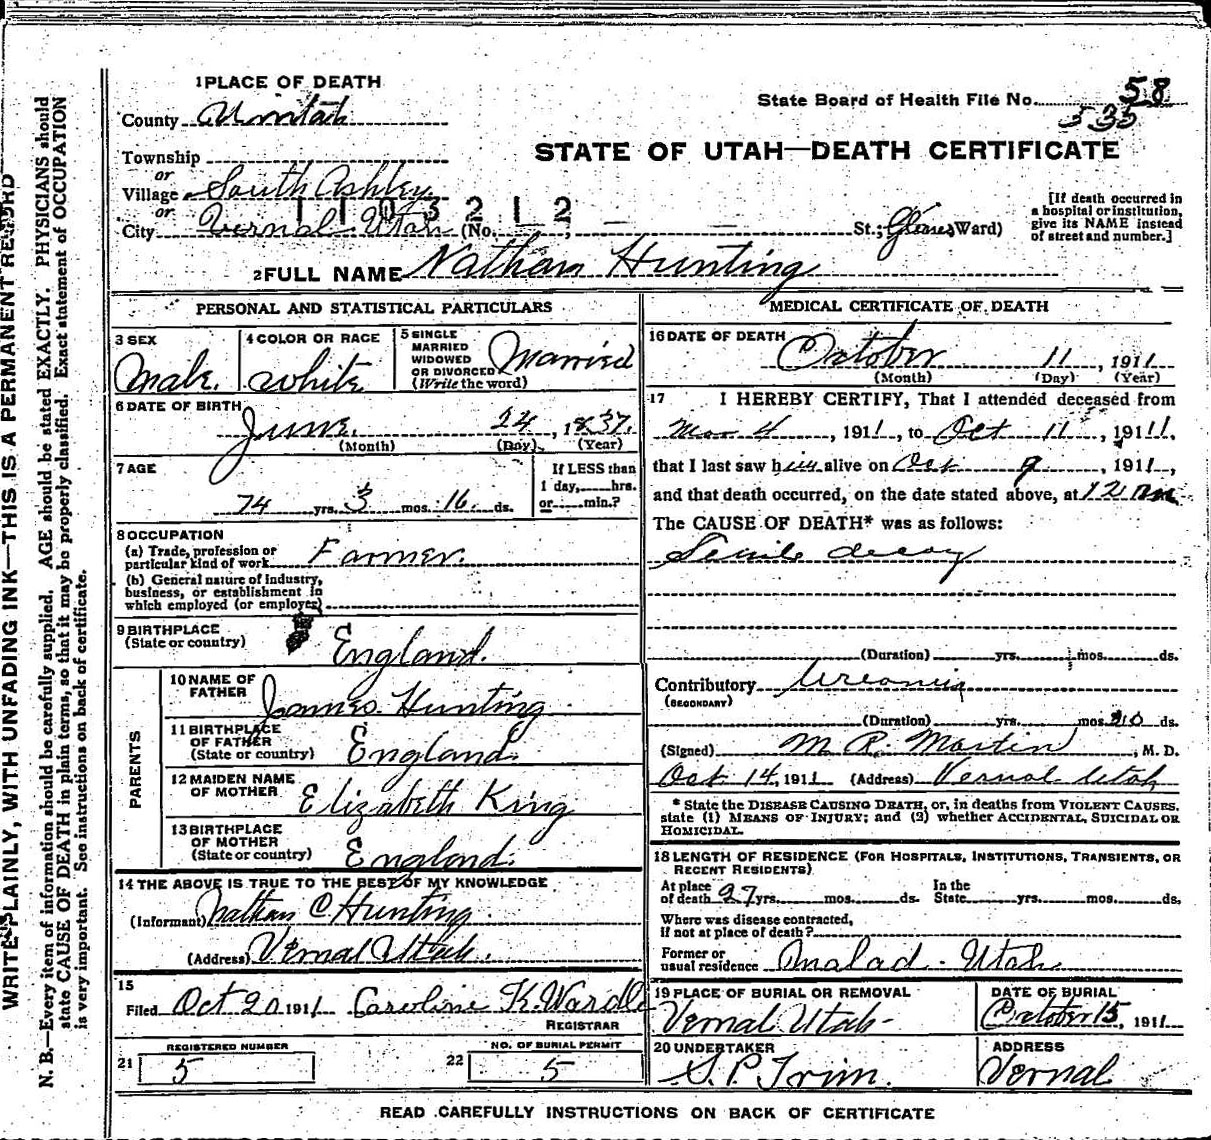 WRITE PLAINLY, WITH UNFADING INK—THIS IS A PERMANENT RECORD
N. B.—Every item of information should be carefully supplied. AGE should be stated EXACTLY. PHYSICIANS should
state CAUSE OF DEATH in plain terms, so that it may be properly classified. Exact statement of OCCUPATION
is very important. See instructions on back of certificate.
1 PLACE OF DEATH
County Uintah
State Board of Health File No. 58
535
STATE OF UTAH—DEATH CERTIFICATE
Township
or
Village South Ashley
or
1103212
City Vernal Utah (No. — St.; Glines Ward)
[If death occurred in
a hospital or institution,
give its NAME instead
of street and number.]
2 FULL NAME Nathan Hunting
PERSONAL AND STATISTICAL PARTICULARS
3 SEX
Male.
4 COLOR OR RACE
white
5 SINGLE
MARRIED
WIDOWED
OR DIVORCED
(Write the word)
Married
6 DATE OF BIRTH
June. 24, 1837.
(Month) (Day) (Year)
7 AGE
74 yrs. 3 mos. 16 ds.
If LESS than
1 day, hrs.
or min.?
8 OCCUPATION
(a) Trade, profession or
particular kind of work Farmer.
(b) General nature of industry,
business, or establishment in
which employed (or employer)
9 BIRTHPLACE
(State or country)
England.
PARENTS
10 NAME OF
FATHER
James Hunting
11 BIRTHPLACE
OF FATHER
(State or country)
England
12 MAIDEN NAME
OF MOTHER
Elizabeth King
13 BIRTHPLACE
OF MOTHER
(State or country)
England.
14 THE ABOVE IS TRUE TO THE BEST OF MY KNOWLEDGE
(Informant) Nathan C Hunting
(Address) Vernal Utah.
15
Filed Oct 20 1911 Caroline K. Wardle
REGISTRAR
REGISTERED NUMBER
21 5
NO. OF BURIAL PERMIT
22 5
MEDICAL CERTIFICATE OF DEATH
16 DATE OF DEATH
October 11, 1911
(Month) (Day) (Year)
17 I HEREBY CERTIFY, That I attended deceased from
Mar 4, 1911, to Oct 11, 1911,
that I last saw him alive on Oct 9, 1911,
and that death occurred, on the date stated above, at 12 m
The CAUSE OF DEATH* was as follows:
Senile decay
(Duration) yrs. mos. ds.
Contributory Uraemia
(SECONDARY)
(Duration) yrs. mos. 10 ds.
(Signed) M R. Martin, M. D.
Oct 14, 1911 (Address) Vernal Utah
* State the DISEASE CAUSING DEATH, or, in deaths from VIOLENT CAUSES,
state (1) MEANS OF INJURY; and (2) whether ACCIDENTAL, SUICIDAL OR
HOMICIDAL.
18 LENGTH OF RESIDENCE (FOR HOSPITALS, INSTITUTIONS, TRANSIENTS, OR
RECENT RESIDENTS)
At place
of death 27 yrs. mos. ds.
In the
State yrs. mos. ds.
Where was disease contracted,
if not at place of death?
Former or
usual residence Malad - Utah
19 PLACE OF BURIAL OR REMOVAL
Vernal Utah -
DATE OF BURIAL
October 15, 1911
20 UNDERTAKER
S. P. Trim.
ADDRESS
Vernal
READ CAREFULLY INSTRUCTIONS ON BACK OF CERTIFICATE